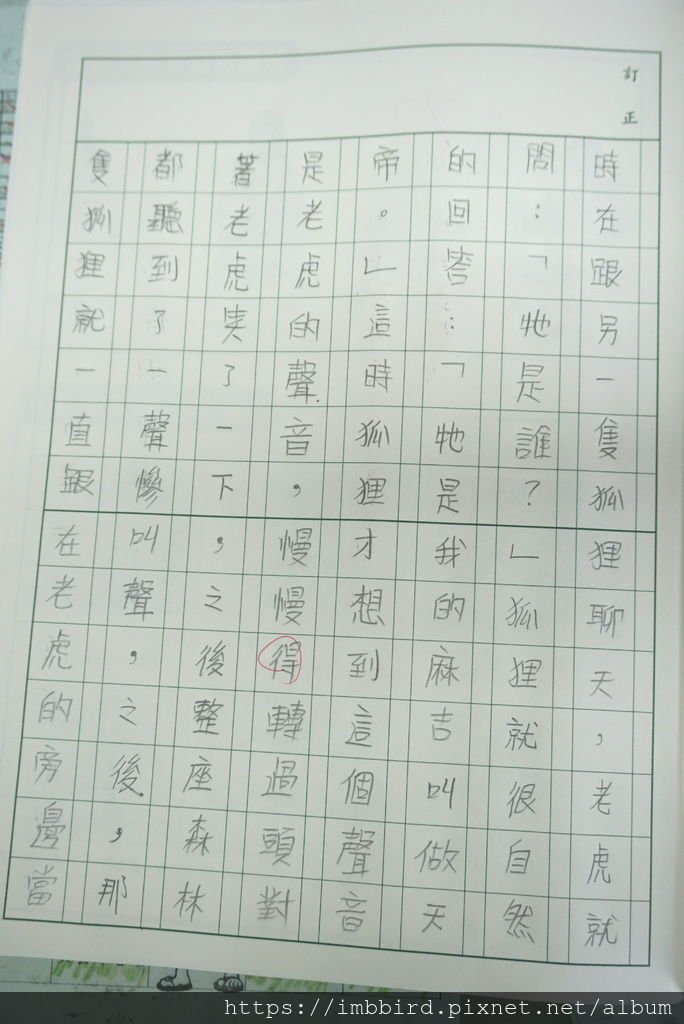 訂正
時在跟另一隻狐狸聊天，老虎就
問：「牠是誰？」狐狸就很自然
的回答：「牠是我的麻吉叫做天
帝。」這時狐狸才想到這個聲音
是老虎的聲音，慢慢得轉過頭對
著老虎笑了一下，之後整座森林
都聽到了一聲慘叫聲，之後，那
隻狐狸就一直跟在老虎的旁邊當
https://imbbird.pixnet.net/album